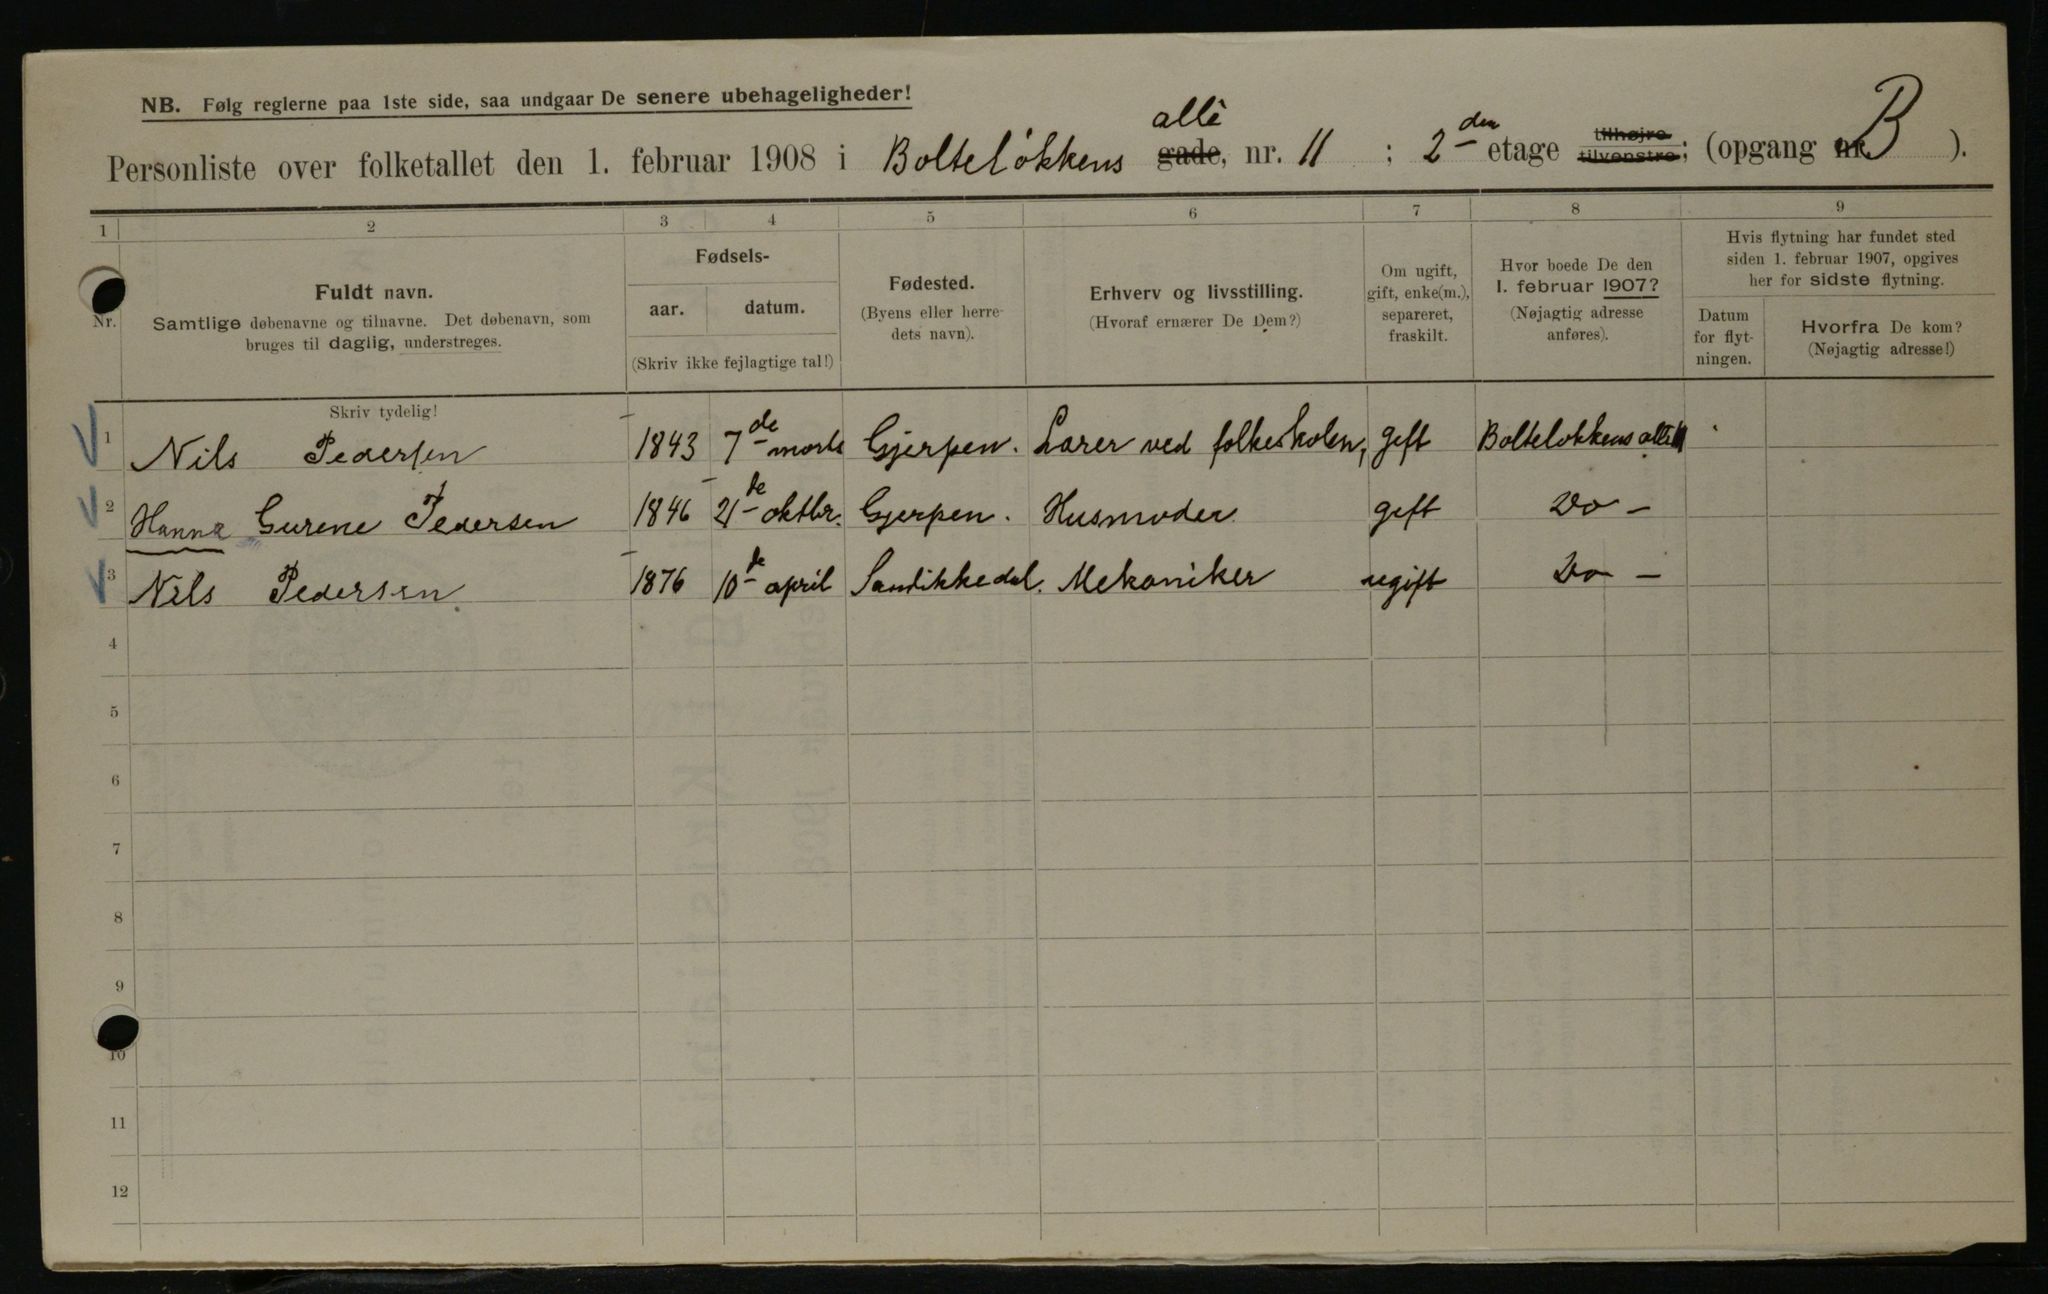 NB. Følg reglerne paa 1ste side, saa undgaar De senere ubehageligheder!
Personliste over folketallet den 1. februar 1908 i Bolteløkkens allè gade, nr. 11 ; 2den etage tilhøjre tilvenstre; (opgang nr. B ).
1 2 3 4 5 6 7 8 9
Nr.
Fuldt navn.
Samtlige døbenavne og tilnavne. Det døbenavn, som
bruges til daglig, understreges.
Fødsels-
aar. datum.
(Skriv ikke fejlagtige tal!)
Fødested.
(Byens eller herre-
dets navn).
Erhverv og livsstilling.
(Hvoraf ernærer De Dem?)
Om ugift,
gift, enke(m.),
separeret,
fraskilt.
Hvor boede De den
1. februar 1907?
(Nøjagtig adresse
anføres).
Hvis flytning har fundet sted
siden 1. februar 1907, opgives
her for sidste flytning.
Datum
for flyt-
ningen.
Hvorfra De kom?
(Nøjagtig adresse!)
Skriv tydelig!
1 Nils Pedersen 1843 7de marts Gjerpen. Lærer ved folkeskolen, gift Bolteløkkens alle 11
2 Hanna Gurene Pedersen 1846 21de oktbr. Gjerpen. Husmoder gift Do -
3 Nils Pedersen 1876 10de april Sandikkedal. Mekaniker ugift Do -
4
5
6
7
8
9
10
11
12